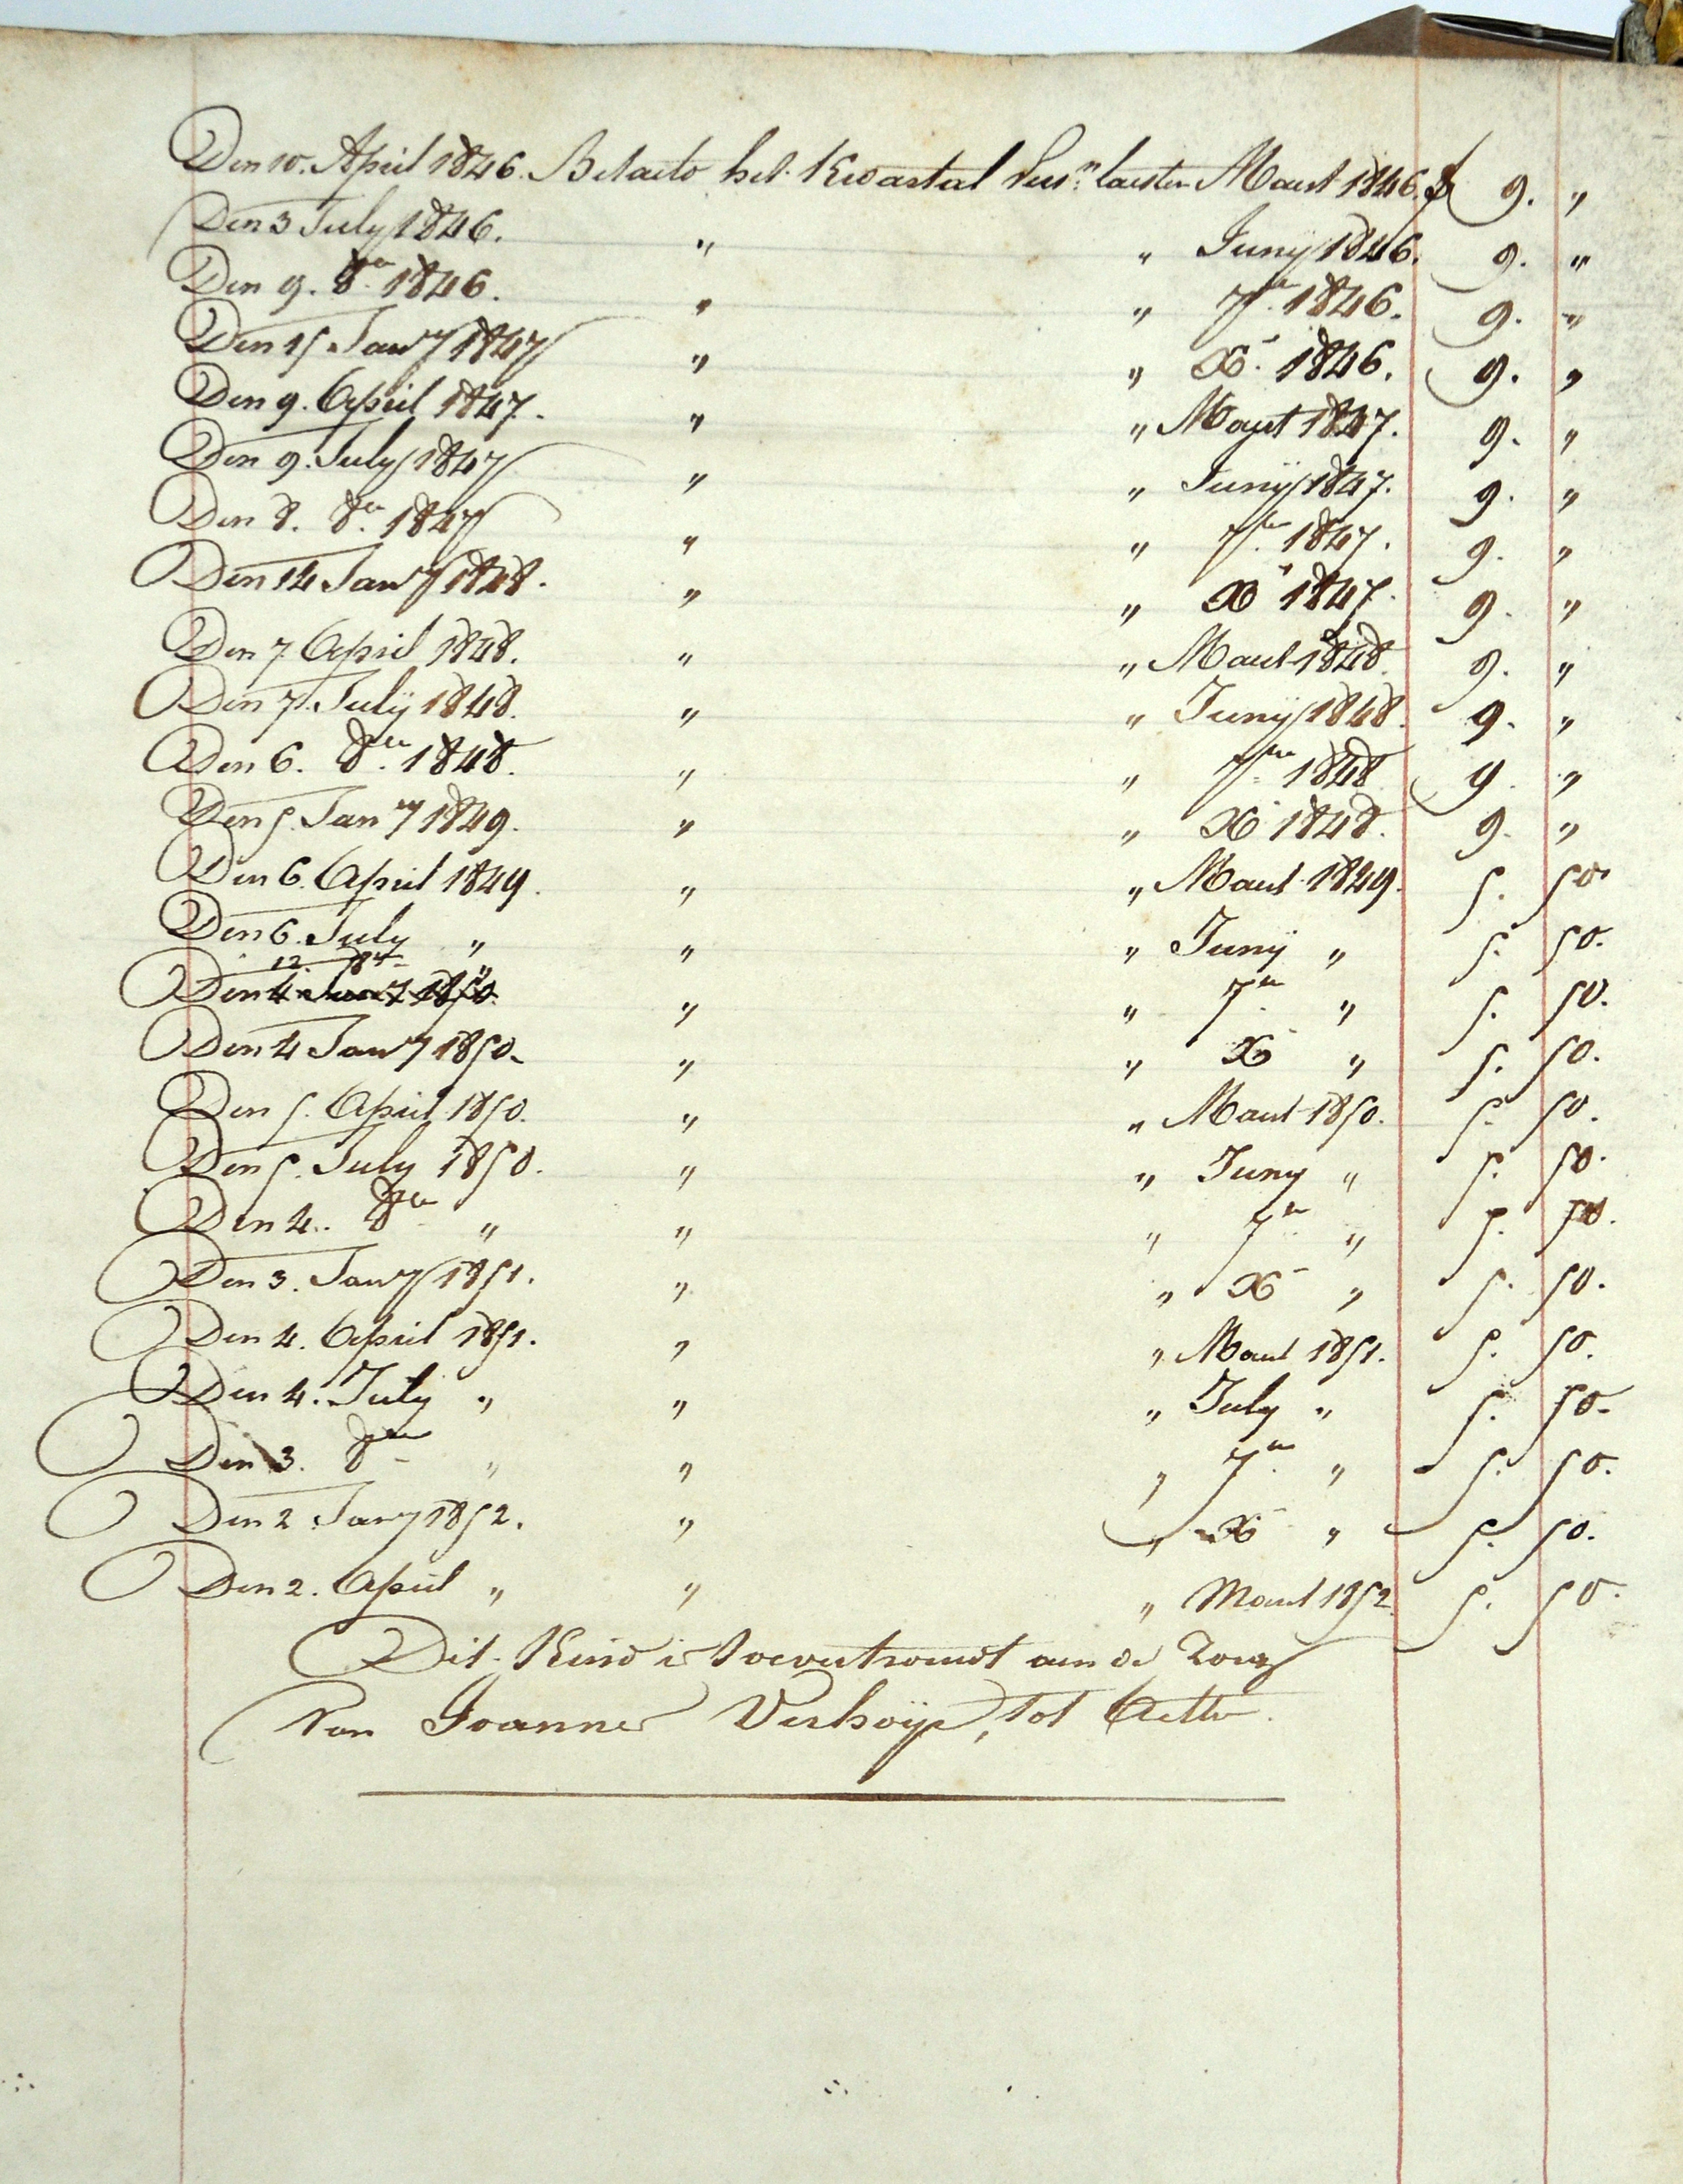 Den 10. April 1846. Betaeld het Kwartal laesten Maert 1846. f 9. "
Den 3 July 1846. " " Junij 1846. 9. "
Den 9. 8er 1846. " " 7er 1846. 9. "
Den 15 Janry 1847 " " Xr 1846. 9. "
Den 9. April 1847. " " Maert 1847. 9. "
Den 9. July 1847 " " Junij 1847. 9. "
Den 8. 8er 1847 " " 7er 1847. 9. "
Den 14 Janry 1848. " " Xr 1847. 9. "
Den 7 April 1848. " " Maert 1848. 9. "
Den 7. July 1848. " " Junij 1848. 9. "
Den 6. 8er 1848. " " 7er 1848 9. "
Den 5. Janry 1849. " " Xr 1848. 9. "
Den 6. April 1849. " " Maert 1849. 5. 50
Den 6. July " " " Junij " 5. 50.
12. 8er "
Den 4 Janry 1850. " " 7er " 5. 50.
Den 4 Janry 1850. " " Xr " 5. 50.
Den 5. April 1850. " " Maert 1850. 5. 50.
Den 5. July 1850. " " Juny " 5. 50.
Den 4. 8er " " " 7er " 5. 50.
Den 3. Janry 1851. " " Xr " 5. 50.
Den 4. April 1851. " " Maert 1851. 5. 50.
Den 4. July " " " July " 5. 50.
Den 3. 8er " " " 7er " 5. 50.
Den 2 Janry 1852. " " Xr " 5. 50.
Den 2. April " " " Maert 1852. 5. 50.
Dit Kind is toevertrouwt aen de Zorg
Van Joannes Verhoije, tot